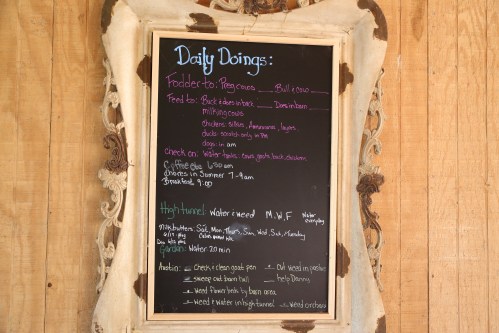 Daily Doings:
Fodder to: Preg cows ___ Bull & cow ___
Feed to: Buck & does in back ___ Does in barn ___
milking cows
chickens: silkies, Ameraucana, layers
ducks: scratch only in pm
dogs in am
check on: Water tanks: cows, goats, back, chickens
Coffee 6:00 am
Chores in Summer 7-9am
Breakfast 9:00
High tunnel: Water & weed M.W.F Water everyday
Milk butters: Sat, Mon, Thurs, Sun, Wed, Sat, Tuesday
Garden: Water 20 min
Austin: check & clean goat pen
Cut weed in pasture
sweep out barn hall
help Danny
weed flower beds by barn area
weed & water in high tunnel
weed orchard